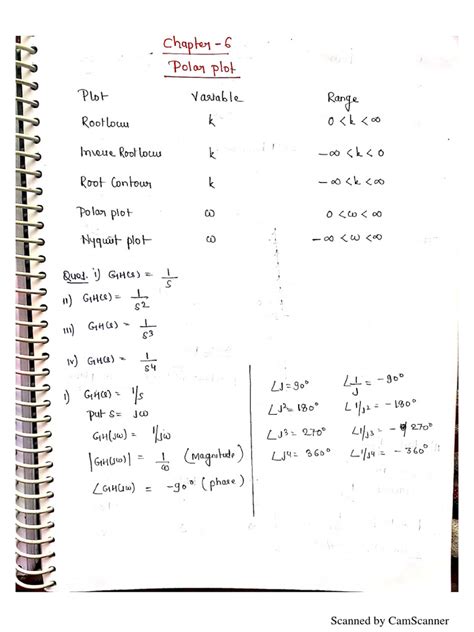 Chapter-6
Polar plot
Plot Variable Range
Root locus k 0 < k < ∞
Inverse Root locus k -∞ < k < 0
Root Contour k -∞ < k < ∞
Polar plot ω 0 < ω < ∞
Nyquist plot ω -∞ < ω < ∞
Ques. i) GH(s) = 1/s
ii) GH(s) = 1/s²
iii) GH(s) = 1/s³
iv) GH(s) = 1/s⁴
i) GH(s) = 1/s
Put s = jω
GH(jω) = 1/jω
|GH(jω)| = 1/ω (Magnitude)
∠GH(jω) = -90° (phase)
∠j = 90° ∠1/j = -90°
∠j² = 180° ∠1/j² = -180°
∠j³ = 270° ∠1/j³ = -270°
∠j⁴ = 360° ∠1/j⁴ = -360°
Scanned by CamScanner